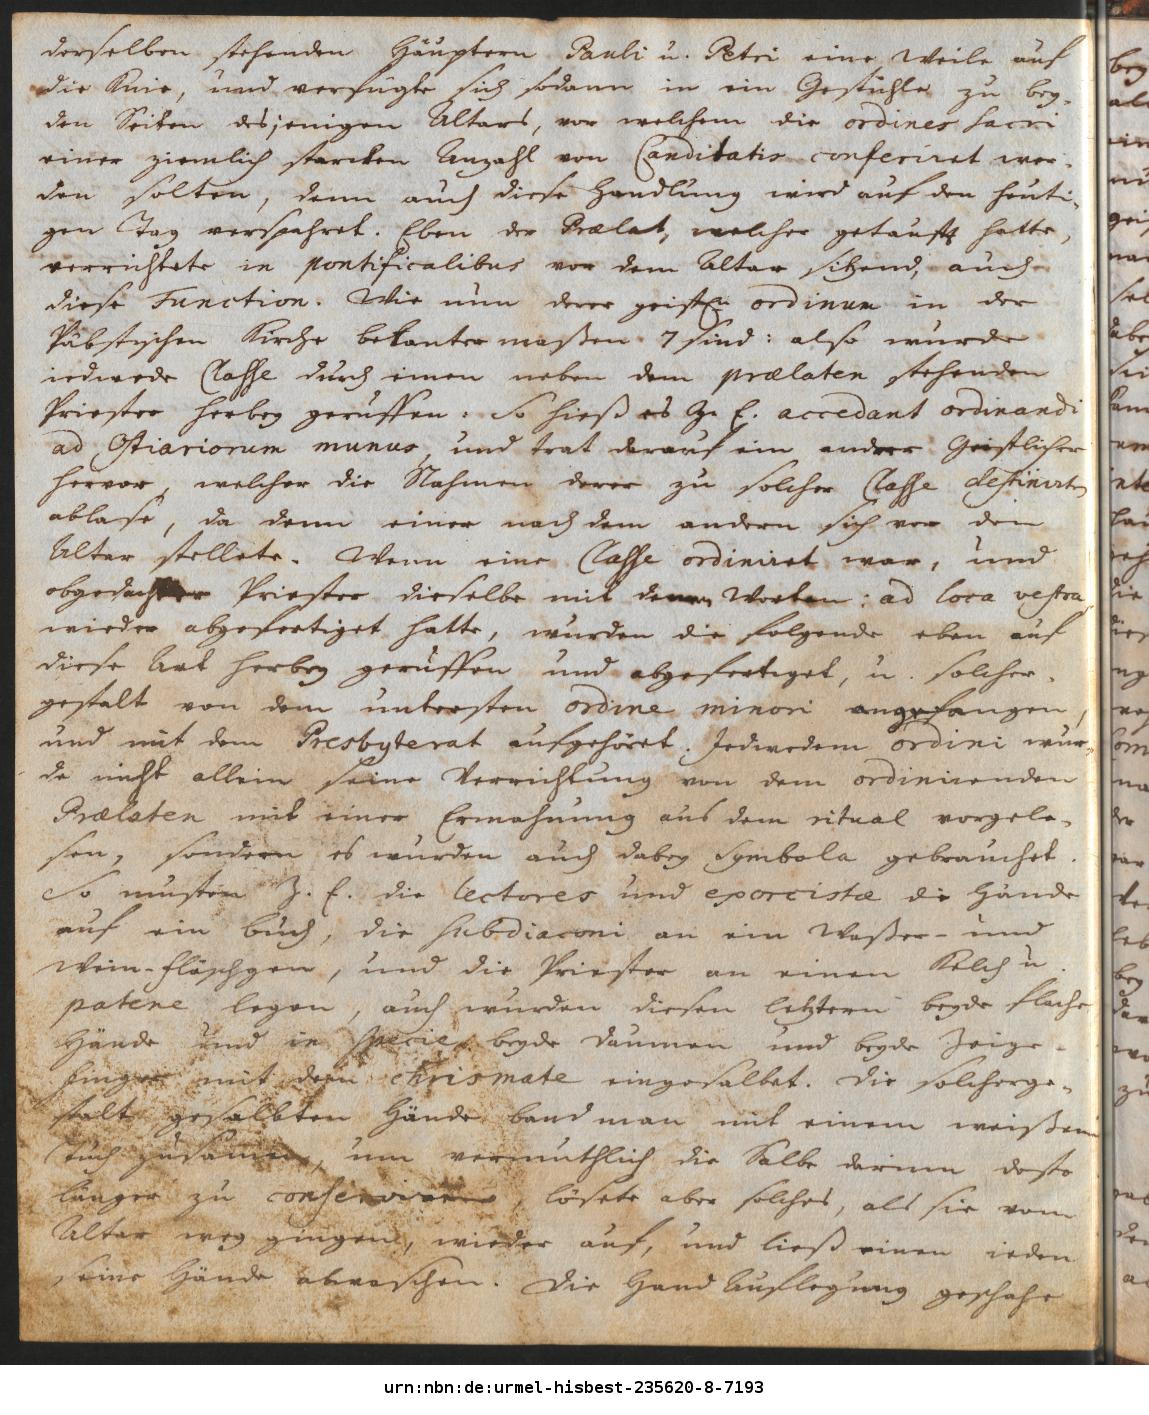 derselben stehenden Häuptern Pauli u. Petri eine Weile auf
die Knie, und verfügte sich sodann in ein Gestühle zu bey-
den Seiten desjenigen Altars, vor welchem die ordines sacri
einer ziemlich starcken Anzahl von Canditatis conferiret wer-
den solten, denn auch diese Handlung wird auf den heuti-
gen Tag verspahret. Eben der Prælat, welcher getaufft hatte,
verrichtete in pontificalibus vor dem Altar sitzend, auch
diese Function. Wie nun derer geistln ordinum in der
Päbstischen Kirche bekanter maßen 7 sind: also wurde
iedwede Classe durch einen neben dem prælaten stehenden
Priester herbey geruffen. So hieß es Z. E. accedant ordinandi
ad Ostiariorum munus, und trat darauf ein andrer Geistlicher
hervor, welcher die Nahmen derer zu solcher Classe destinirten
ablase, da denn einer nach dem andern sich vor dem
Altar stellete. Wenn eine Classe ordiniret war, und
obgedachter Priester dieselbe mit denen Worten: ad loca vestra
wieder abgefertiget hatte, wurden die folgende eben auf
diese Art herbey geruffen und abgefertiget, u. solcher-
gestalt von dem untersten ordine minori angefangen,
und mit dem Presbyterat aufgehöret. Jedwedem ordini wur-
de nicht allein seine Verrichtung von dem ordinirenden
Prælaten mit einer Ermahnung aus dem ritual vorgele-
sen, sondern es wurden auch dabey Symbola gebrauchet.
So musten Z. E. die lectores und exorcistæ die Hände
auf ein buch, die subdiaconi an ein Waßer- und
Wein-fläschgen, und die Priester an einen Kelch u.
patene legen, auch wurden diesen letztern beyde flache
Hände und in specie beyde Daumen und beyde Zeige-
finger mit dem chrismate eingesalbet. Die solcherge-
stalt gesalbten Hände band man mit einem weißen
Tuch zusamen, um vermuthlich die Salbe darinn desto
länger zu conserviren, lösete aber solches, als sie vom
Altar weg gingen, wieder auf, und ließ einen ieden
seine Hände abwaschen. Die Hand Auflegung geschahe
urn:nbn:de:urmel-hisbest-235620-8-7193